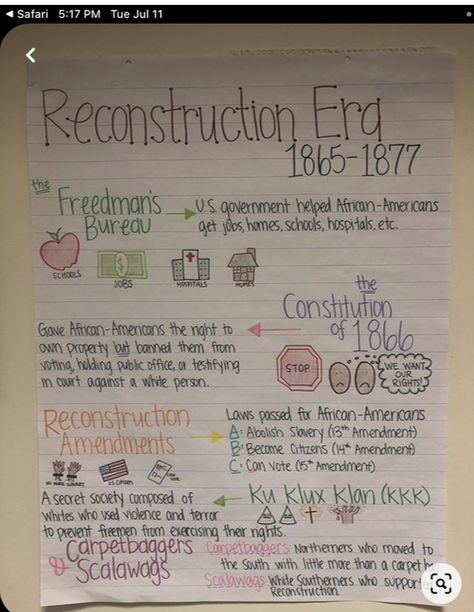 Safari 5:17 PM Tue Jul 11
Reconstruction Era
1865-1877
the
Freedman's
Bureau
U.S. government helped African-Americans
get jobs, homes, schools, hospitals, etc.
SCHOOLS
JOBS
HOSPITALS
HOMES
the
Constitution
of 1866
Gave African-Americans the right to
own property but banned them from
voting, holding public office, or testifying
in court against a white person.
STOP
WE WANT
OUR
RIGHTS!
Reconstruction
Amendments
Laws passed for African-Americans
A: Abolish Slavery (13th Amendment)
B: Become Citizens (14th Amendment)
C: Can Vote (15th Amendment)
NO MORE SLAVERY
U.S. Citizen
Ku Klux Klan (KKK)
A secret society composed of
whites who used violence and terror
to prevent freemen from exercising their rights.
Carpetbaggers
& Scalawags
Carpetbaggers Northerners who moved to
the South with little more than a carpet
Scalawags White Southerners who
Reconstruction.